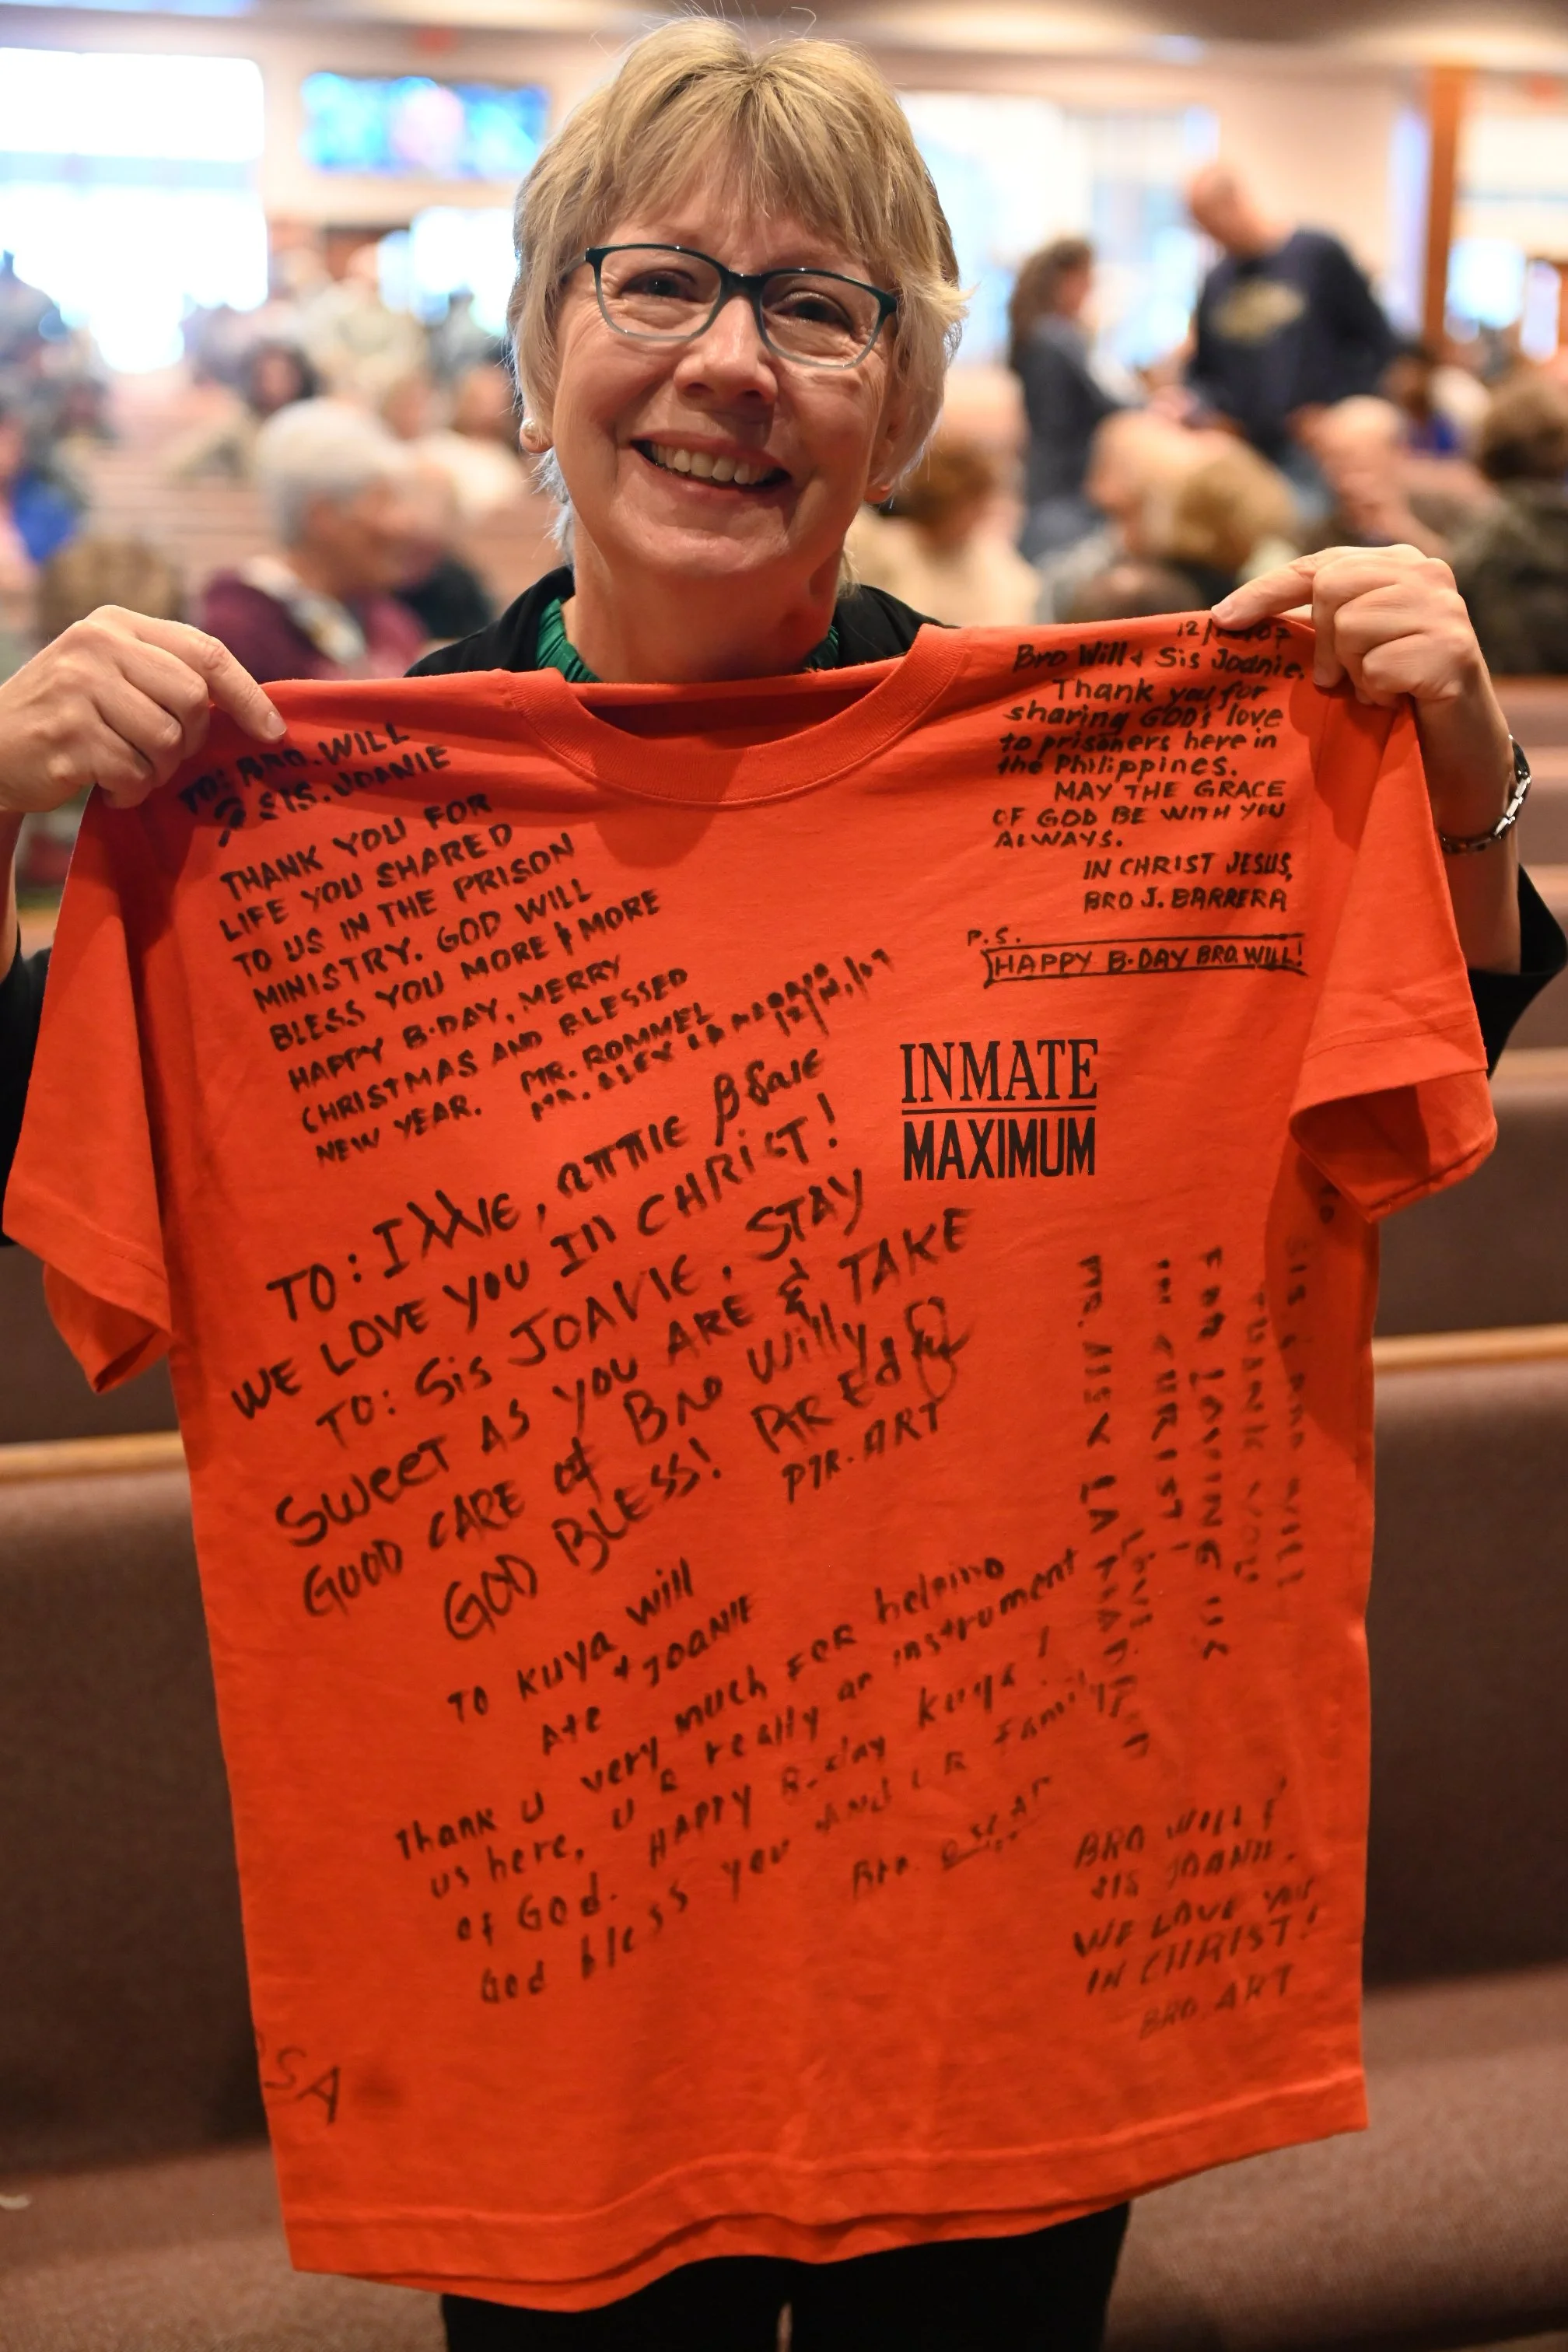 TO: BRO. WILL
& SIS. JOANIE
THANK YOU FOR
LIFE YOU SHARED
TO US IN THE PRISON
MINISTRY. GOD WILL
BLESS YOU MORE & MORE
HAPPY B-DAY, MERRY
CHRISTMAS AND BLESSED
NEW YEAR. MR. ROMMEL
MR. ALEX
12/
Bro Will & Sis Joanie,
Thank you for
sharing GOD's love
to prisoners here in
the Philippines.
MAY THE GRACE
OF GOD BE WITH YOU
ALWAYS.
IN CHRIST JESUS,
BRO J. BARRERA
P.S.
HAPPY B-DAY BRO. WILL!
INMATE
MAXIMUM
TO:
WE LOVE YOU IN CHRIST!
TO: Sis JOANIE, STAY
SWEET AS YOU ARE & TAKE
GOOD CARE of Bro Willy
GOD BLESS!
PTR. ART
TO KUYA Will
Ate & JOANIE
Thank U very much FOR helping
us here, U R really an instrument
of God. HAPPY B-day kuya!
God bless you And UR Family
Bro. OSCAR
SIS & BRO WILL
THANK YOU
FOR LOVING US
IN CHRIST!
LOVE,
MR. ALEX
BRO WILL &
SIS JOANIE.
WE LOVE YOU
IN CHRIST!
BRO. ART
SA